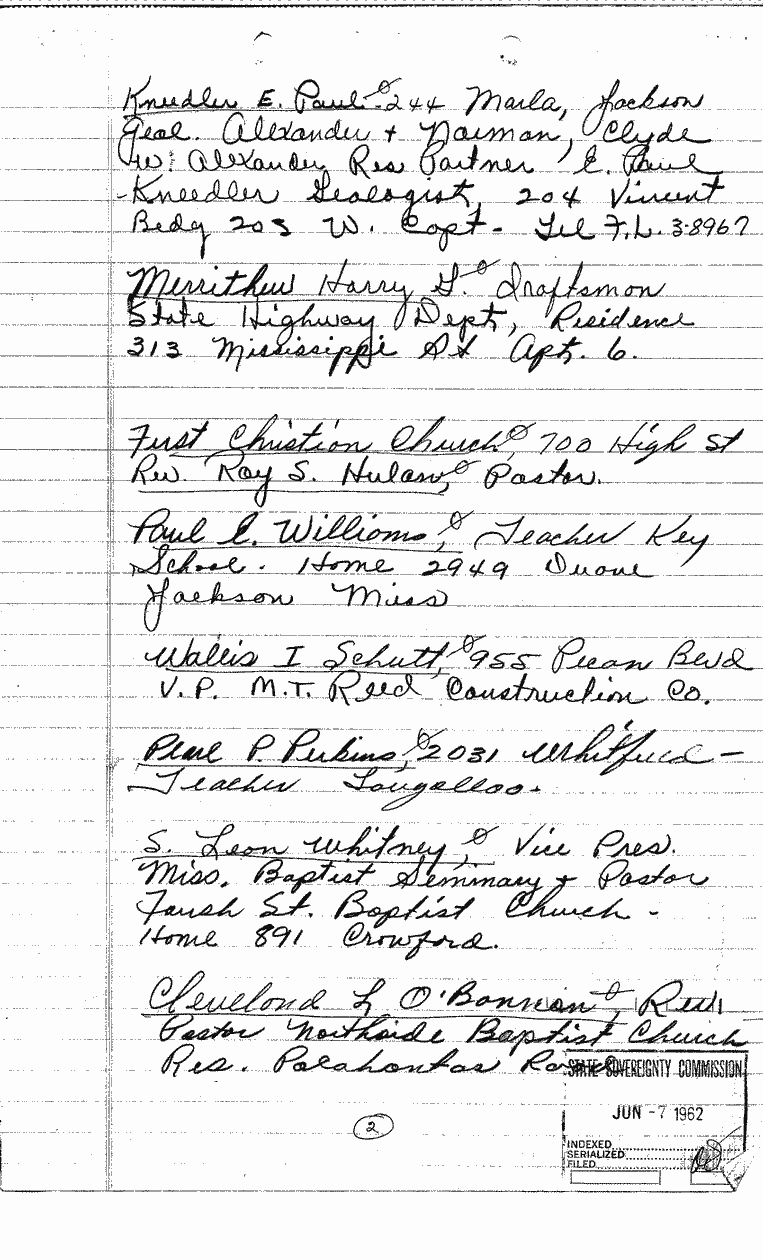 Kneedler E. Paul - 244 Marla, Jackson
Geol. Alexander + Norman, Clyde
W. Alexander Res Partner E. Paul
Kneedler Geologist, 204 Vincent
Bedg 203 W. Capt - Tel F.L. 3-8967
Merrithew Harry G. Draftsman
State Highway Dept, Residence
313 Mississippi St Apt. 6.
First Christian Church, 700 High St
Rev. Ray S. Hulan, Pastor.
Paul E. Williams, Teacher Key
School. Home 2949 Duane
Jackson Miss
Wallis I Schutt, 955 Pecan Blvd
V.P. M.T. Reed Construction Co.
Pearl P. Perkins, 2031 Whitfield -
Teacher Tougaloo.
S. Leon Whitney, Vice Pres.
Miss. Baptist Seminary + Pastor
Farish St. Baptist Church -
Home 891 Crawford.
Cleveland L O'Bannion, Rev.
Pastor Northside Baptist Church
Res. Pocahontas
STATE SOVEREIGNTY COMMISSION
JUN -7 1962
2
INDEXED
SERIALIZED
FILED